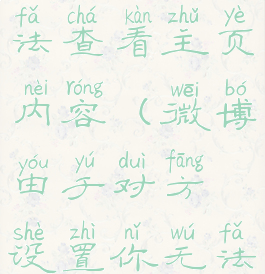 fǎ chá kàn zhǔ yè
法查看主页
nèi róng wēi bó
内容（微博
yóu yú duì fāng
由于对方
shè zhì nǐ wú fǎ
设置你无法